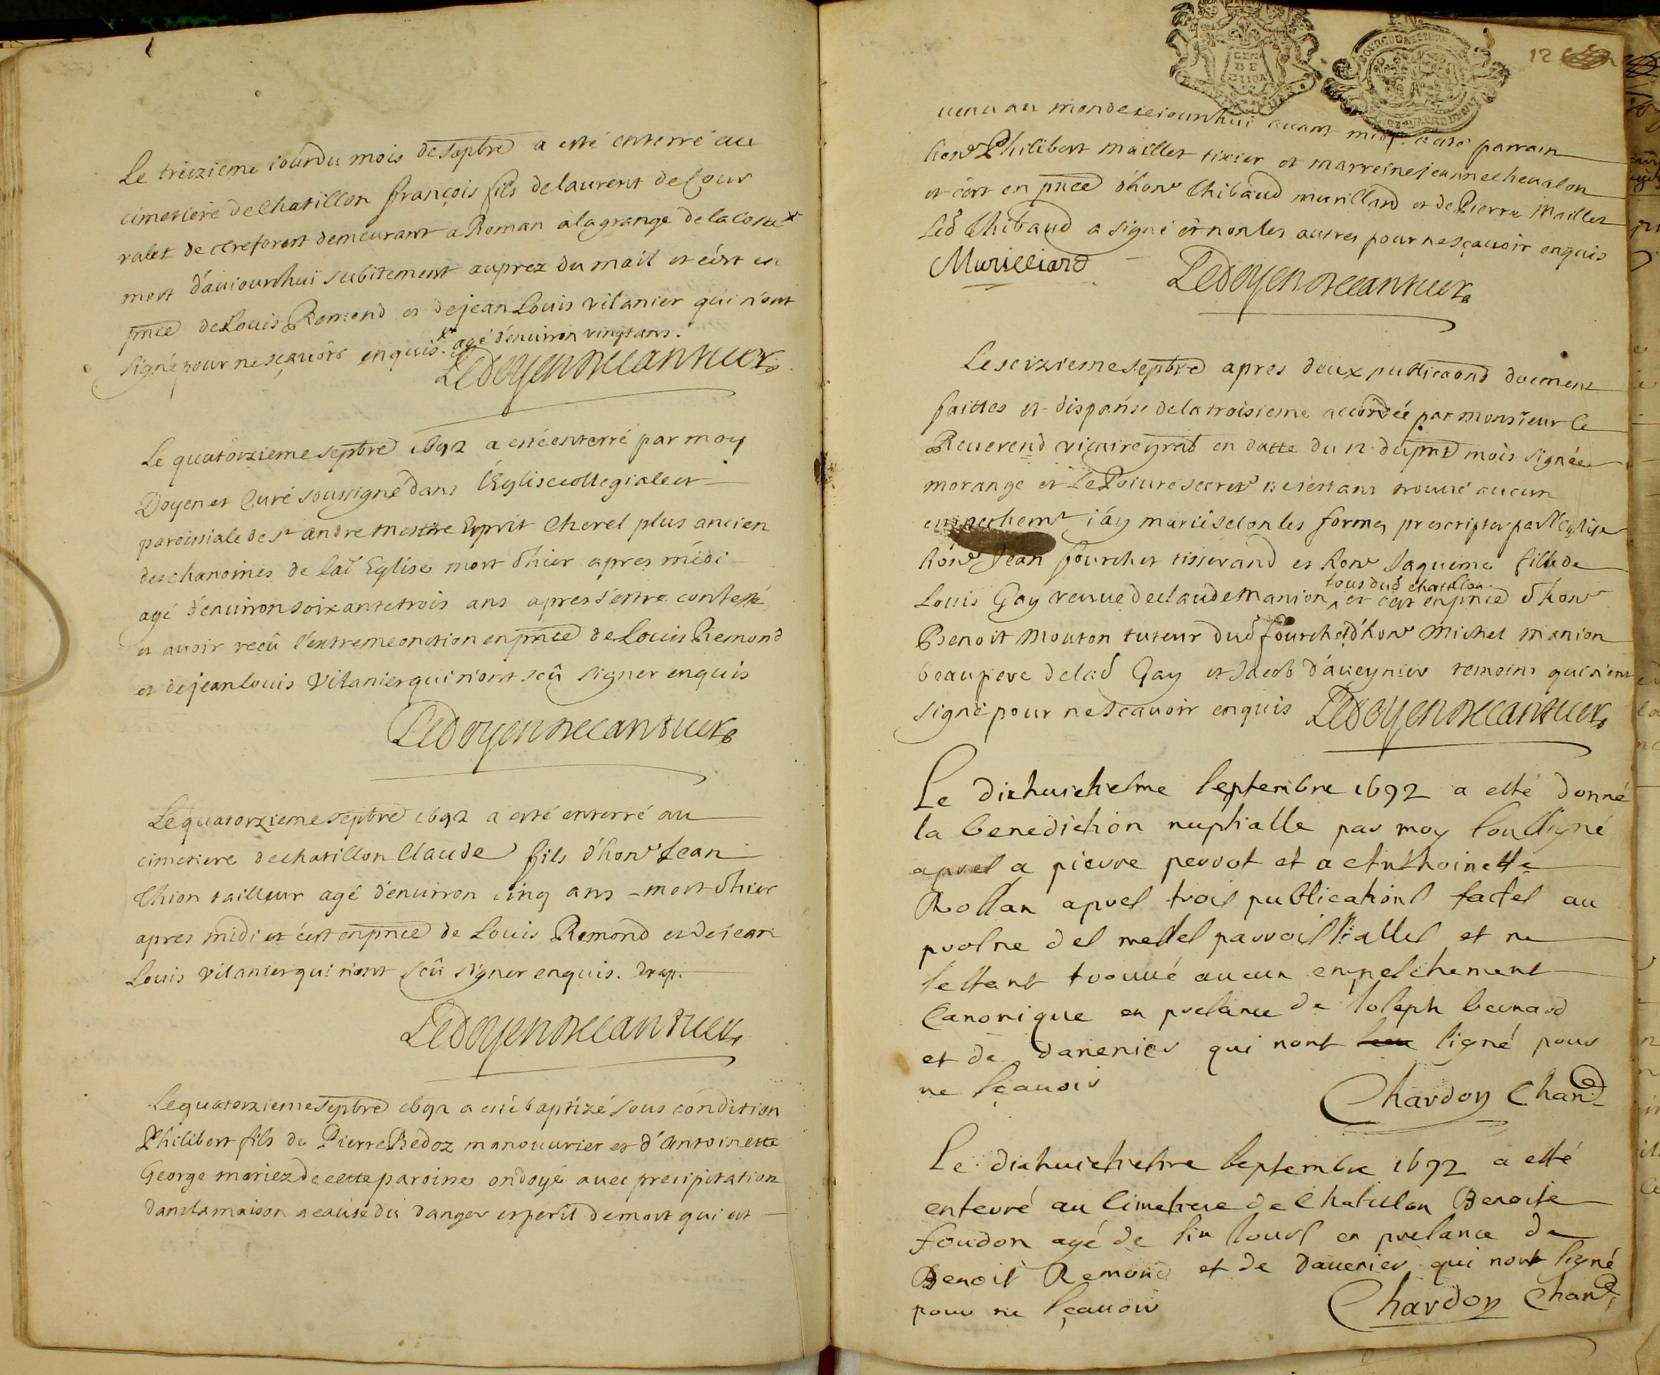 Le treizieme jour du mois de septbre a esté enterré au
cimetiere de Chatillon françois fils de laurent de Cour
valet de demeurant a Roman a la grange de la
mort d'aujourdhui subitement auprez du mail et c'est en
pnce de Louis Remond et de jean Louis vilanier qui n'ont
signé pour ne sçavoir enquis. agé d'environ vingt ans.
Le doyen
Le quatorzieme septbre 1692 a esté enterré par moy
Doyen et Curé soussigné dans l'Eglise collegiale et
paroissiale de st andre messire Esprit Cherel plus ancien
des chanoines de lad Eglise mort d'hier apres midi
agé d'environ soixante trois ans apres s'estre confessé
et avoir reçû l'extreme onction en pnce de Louis Remond
et de jean louis vilanier qui n'ont sçû signer enquis
Le doyen
Le quatorzieme septbre 1692 a esté enterré au
cimetiere de chatillon Claude fils d'hon Jean
Chion tailleur agé d'environ cinq ans mort d'hier
apres midi et c'est en pnce de Louis Remond et de jean
Louis vilanier qui n'ont sçû signer enquis.
Le doyen
Le quatorzieme septbre 1692 a esté baptizé sous condition
Philibert fils de Pierre Bedoz manouvrier et d'Antoinette
George mariez de cette paroisse ondoyé avec precipitation
dans la maison a cause du danger et peril de mort qui est
12
venu au monde cejourdhui avant midi a été parrain
hon Philibert maillet tixier et marreine jeanne chevalon
et c'est en pnce d'hon Thibaud murillard et de Pierre Maillet
Led Thibaud a signé et non les autres pour ne sçavoir enquis
Murilliard
Le doyen
Le seizieme septbre apres deux publicaons duement
faittes et dispanse de la troisieme accordée par monsieur le
Reverend vicaire gnral en datte du 12 du pnt mois signée
morange et ne s'estant trouvé aucun
empechemt j'ay marié selon les formes prescriptes par l'Eglise
hon Jean fourchet tisserand et hon Jaqueme fille de
tous dud chatillon
Louis Gay veuve de claude manion et c'est en pnce d'hon
Benoit Mouton tuteur dud fourchet d'hon Michel manion
beaupere de lad Gay et Jacob d'aveynier temoins qui n'ont
signé pour ne sçavoir enquis Le doyen
Le dixhuictiesme septembre 1692 a esté donné
la benediction nuptialle par moy soussigné
apres a pierre perrot et a Anthoinette
Rollan apres trois publications faictes au
prosne des messes parroissialles et ne
sestant trouvé aucun empeschement
Canonique en presance de Joseph bernard
et de danenier qui nont signé pour
ne sçauoir
Chardon Chane
Le dixhuictiesme septembre 1692 a esté
enterré au Cimetiere de Chatillon Benoite
foudon agé de six Jours en presance de
Benoit Remond et de daverier qui nont signé
pour ne sçauoir
Chardon Chane